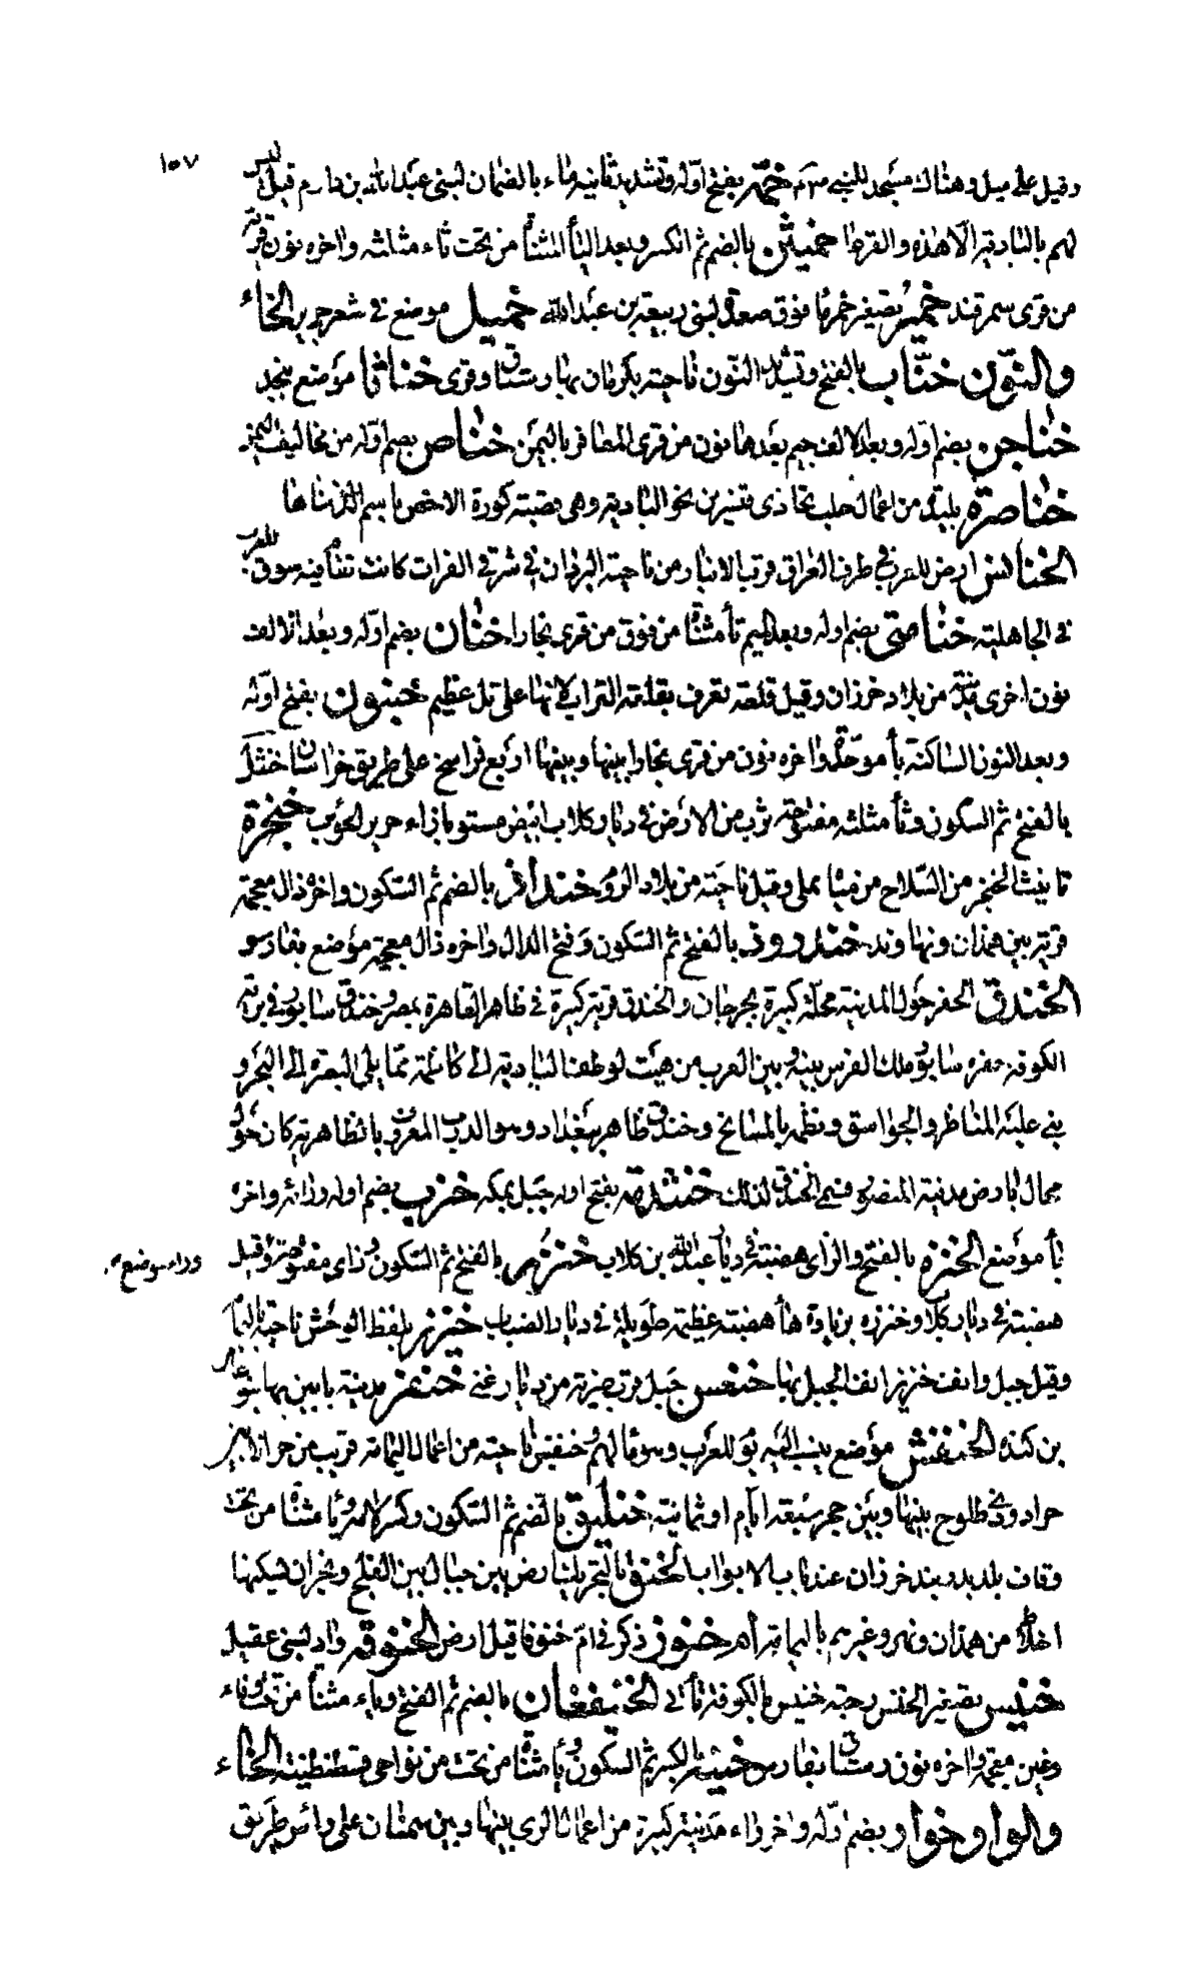 ١٥٧
وقيل على ميل وهناك مسجد للنبي صلعم خمّر بفتح اوله وتشديد ثانيه ماء بالضمان لبنى عبد الله بن دارم قيل ليس
لهم بالبادية الا هذه والقرعا خميثن بالضم ثم الكسر وبعد اليأ المثناة من تحت ثاء مثلثه واخره نون قرية
من قرى سمرقند خمير تصغير خمر ما فوق صعدة لبنى ربيعة بن عبد الله خميل موضع فى شعر جرير الخاء
والنون خناب بالفتح وتشديد النون ناحية بكرمان بها رستاق وقرى خناثا موضع بنجد
خناجن بضم اوله وبعد الالف جيم بعدها نون من قرى المعافر باليمن خناص بضم اوله من مخاليف اليمن
خناصرة بليدة من اعمال حلب تحاذى قنسرين نحو البادية وهى قصبة كورة الاحص باسم الذى بناها
الخنافس ارض للعرب فى طرف العراق قرب الانبار من ناحية البردان فى شرقى الفرات كانت تقام فيه سوق للعرب
فى الجاهلية خنامتى بضم اوله وبعد الميم تأ مثناة من فوق من قرى بخارا خنان بضم اوله وبعد الالف
نون اخرى مدينة من بلاد خرزان وقيل قلعة تعرف بقلعة التراب لانها على تل عظيم خنبون بفتح اوله
وبعد النون الساكنة بأ موحدة واخره نون من قرى بخارا بينها وبينها اربع فراسخ على طريق خراسان خنثل
بالفتح ثم السكون وثأ مثلثه مفتوحة قرب من الارض فى ديار كلاب ابيض مستو بازاء حرير الحوأب خنجرة
تانيث الخنجر من السلاح من مياه نملى وقيل ناحية من بلاد الروم خنداذ بالضم ثم السكون واخره ذال معجمة
قرية بين همذان ونهاوند خندروذ بالفتح ثم السكون وفتح الدال واخره ذال معجمة موضع بفارس
الخندق الحفر حول المدينة محلة كبيرة بجرجان والخندق قرية كبيرة فى ظاهر القاهرة بمصر وخندق سابور فى برية
الكوفة حفره سابور ملك الفرس بينه وبين العرب من هيت لوطفا البادية الى كاظمة مما يلى البصرة الى البحر و
بنى عليه المناظر والجواسق ونظمه بالمسالح وخندق طاهر ببغداد وهو الدرب المعروف بالطاهرية كان حول
محال بارض مدينة المنصور فسمى الخندق لذلك خندمة بفتح اوله جبل بمكة خنزب بضم اوله وزائر واخره
بأ موضع الخنزة بالفتح والزاى هضبة فى ديار عبد الله بن كلاب خنزر بالفتح ثم السكون وزاى مفتوحة وقيل
وراء موضع
هضبة فى ديار كلاب وخنزره بزيادة هأ هضبة عظيمة طويلة فى ديار الضباب خنزير بلفظ الوحش ناحية باليمامة
وقيل جبل وانف خنزير انف الجبل بها خنعس جبل قرب ضرية من ديار غنى خنفر مدينة بابين بها بنو عامر
بن كنده الخنفش موضع ينسب اليه يوم للعرب وهو ماء لهم وخنفس ناحية من اعمال اليمامة قريب من خزالا ليمر
حراد وذى طلوح بينها وبين حجر سبعة ايام او ثمانية خنليق بالضم ثم السكون وكسر لامه ويا مثناة من تحت
وقاف بلد بدربند خرزان عند باب الابواب الخنق بالتحريك ارض بين جبال بين الفلج ونجران يسكنها
اخلاط من همذان ونهد وغيرهم باليمامة ام خنور ذكر فى ام خنور ما قيل ارض الخنوقة واد لبنى عقيل
خنيس تصغير الخنس رحبة خنيس بالكوفة تأتى الخنيفغان بالضم ثم الفتح وياء مثناة من تحت وفاء
وغين معجمة واخره نون رستاق بفارس خنيث بالكسر ثم السكون ويأ مثناة من تحت من نواحى قسطنطينة الخاء
والواو خوار بضم اوله واخره راء مدينة كبيرة من اعمال الرى بينها وبين سمنان على رأس طريق